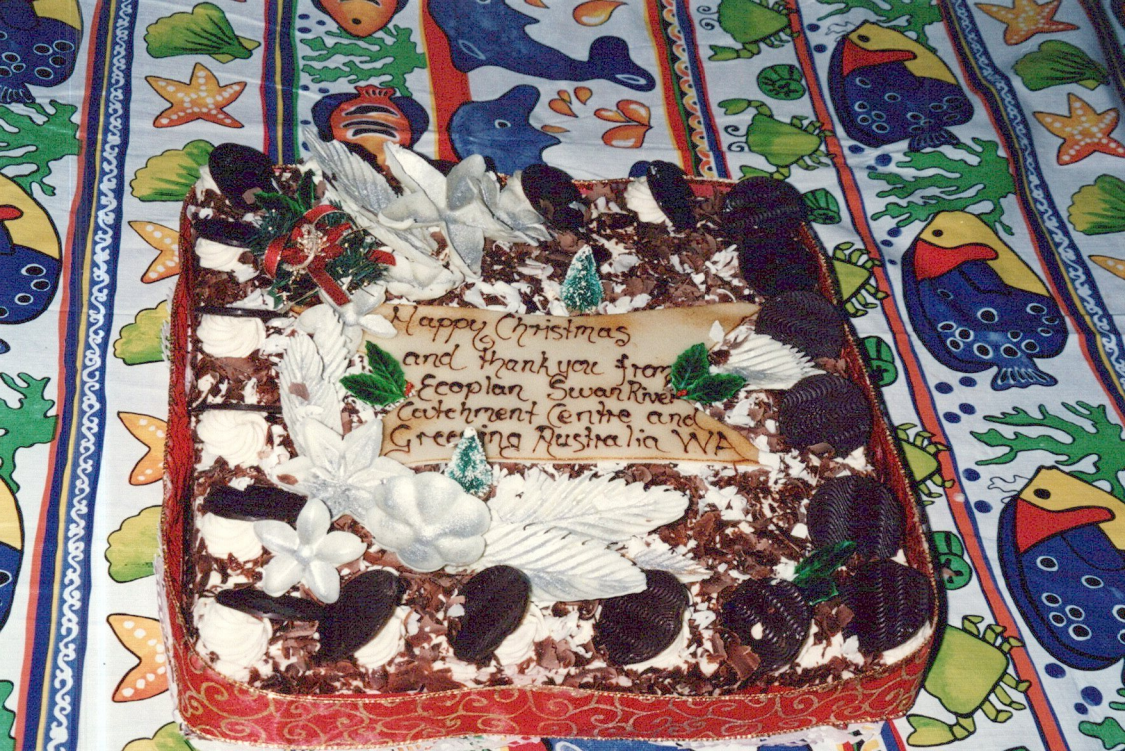 Happy Christmas
and thankyou from
Ecoplan Swan River
Catchment Centre and
Greening Australia WA